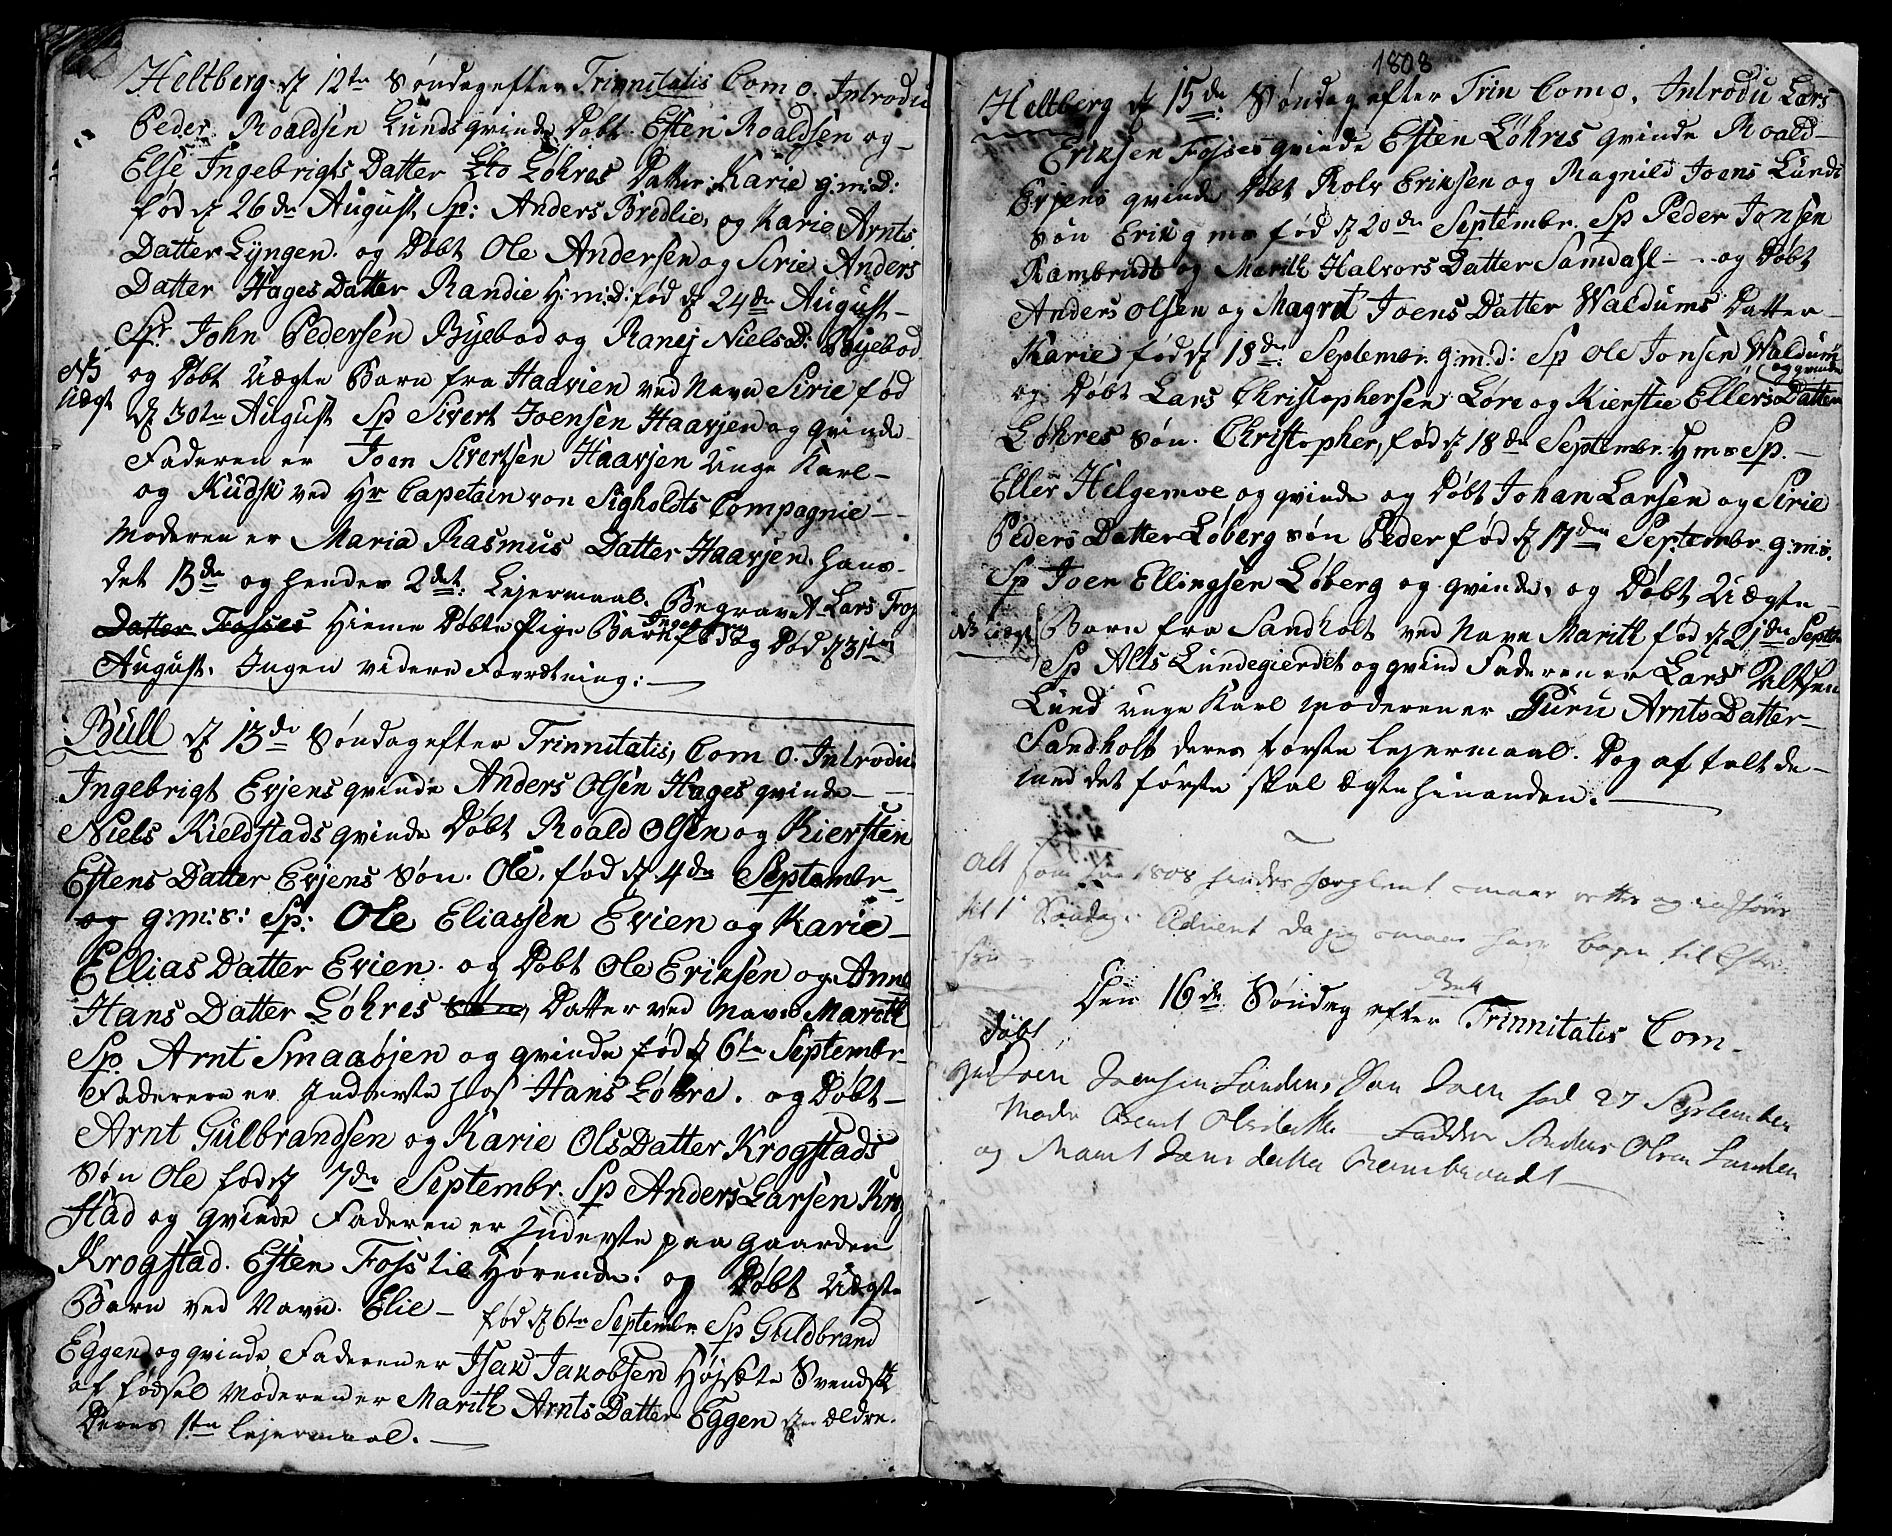 Heltberg d 12te Søndag efter Trinnitatis Com 0. Introdu
Peder Roaldsen Lunds qvinde Døbt Esten Roaldsen og
Else Ingebrigts Datter Løhres Datter Karie g:m:d:
fød d 26de August Sp: Anders Bredlie, og Karie Arnts
Datter Lyngen. og Døbt Ole Andersen og Sirie Anders
Datter Hages Datter Randie H:m:d: fød d 24de August
Sp: John Pedersen Byebod og Ranej Niels D: Byebod
NB
Uægt
og Døbt Uægte Barn fra Haavien ved Navn Sirie fød
d 30te August Sp Sivert Joensen Haavjen og qvinde
Faderen er Joen Sivertsen Haavjen Unge Karl
og Kudsk ved Hr Capetain von Sigholdts Compagnie
Moderen er Maria Rasmus Datter Haavjen. hans
det 13de og hendes 2det: Lejermaal. Begravet Lars Fos
Datter Fosses Hieme Døbte Pige Barn Ingeborg fød og Død d 31te
August. Ingen videre Forrætning:
Büll d 13de Søndag efter Trinnitatis, Com 0. Introdu
Ingebrigt Evjens qvinde Anders Olsen Hages qvinde
Niels Kieldstads qvinde Døbt Roald Olsen og Kiersten
Estens Datter Evjens Søn. Ole. fød d 4de Septembr
og g:m:s: Sp: Ole Eliassen Evien og Karie
Ellias Datter Evien. og Døbt Ole Eriksen og Anne
Hans Datter Løhres Datter ved Navn Marith
Sp. Arnt Smaaøjen og qvinde fød d 6te Septembr
Faderen er Inderste hos Hans Løhre. og Døbt
Arnt Gulbrandsen og Karie Ols Datter Krogstads
Søn Ole fød d 7de Septembr. Sp Anders Larsen Krog
Stad og qvinde Faderen er Inderste paa gaarden
Krogstad. Esten Foss til Hørende. og Døbt Uægte
Barn ved Navn. Elie fød d 6te Septembr Sp Guldbrand
Eggen og qvinde Faderen er Isak Jakobsen Højsæte Svendsk
af fødsel Moderen er Marith Arnts Datter Eggen d: ældre.
Deres 1te Lejermaal.
1808
Heltberg d 15de Søndag efter Trin Com 0. Introdu Lars
Eriksen Fosses qvinde Esten Løhres qvinde Roald
Evjens qvinde Døbt Rolv Eriksen og Magnild Joens Lunds
Søn Erik g m s fød d 20de Septembr. Sp Peder Jonsen
Rambrudt og Marith Halvors Datter Samdahl og Døbt
Anders Olsen og Magret Joens Datter Waldums Datter
Karie fød d 18de Septembr. g:m:d: Sp Ole Jonsen Waldum
og qvinde
og Døbt Lars Christophersen Løre og Kierstie Ellers Datter
Løhres Søn. Christopher, fød d 18de Septembr. H m s Sp.
Eller Helgemoe og qvinde og Døbt Johan Larsen og Sirie
Peders Datter Løberg Søn Peder fød d 17de Septembr. g:m:s.
Sp Joen Ellingsen Løberg og qvinde, og Døbt Uægte
NB Uægt
Barn fra Sandholt ved Navn Marith fød d 21de Septbr
Sp Alts Lundegierdet og qvind Faderen er Lars Altsen
Lund unge Karl Moderen er Guru Arnts Datter
Sandholt deres første Lejermaal. Dog aftalt de
med det første skal ægte hinanden.
alt som 1808
til 1 Søndag i Advent da jeg bogen til
Bull
Den 16de Søndag efter Trinnitatis Com
Døbt
Joen Joensen Lundens Søn Joen fød 27 September
Moder Berit Olsdatter Fadder Anders Olsen Lunden
og Marit Jons datter Rambraadt